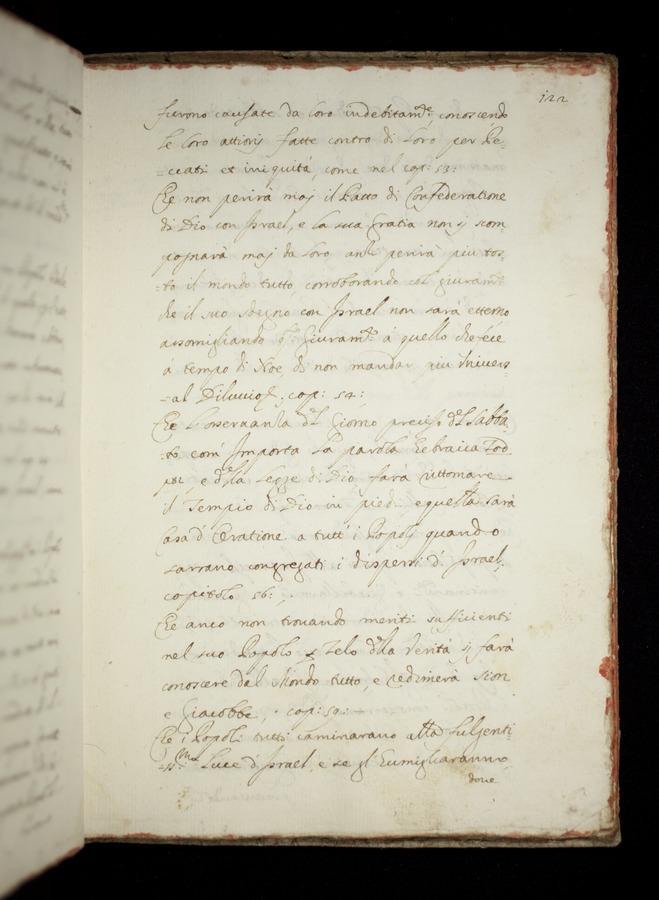 122
furono causate da loro indebitam.te conoscendo
le loro attioni fatte contro di loro per Pe-
-ccati et iniquità, come nel cap: 53:
Che non perirà maj il Patto di Confederatione
di Dio con Israel, e la sua Gratia non si scom
pagnarà maj da loro anzi perirà piu tos-
-to il mondo tutto corroborando col giuram.to
che il suo sdegno con Israel non sarà etterno
assomigliando q.to Giuram.to á quello che fece
á tempo di Noe, di non mandar piu Univers-
-al Diluvio, cap: 54:
Che l'osservanza del Giorno preciso del Sabba
-to com' Importa la parola Hebraica
e della Legge di Dio farà rittornare
il Tempio di Dio in piedi, e questa sarà
Casa d' Oratione a tutt' i Popoli quando
sarrano congregati i dispersi d' Israel,
capitolo 56:
Che anco non trovando meriti sufficienti
nel suo Popolo p Zelo della Verità si farà
conoscere dal Mondo tutto, e redimerà Sion
e Giacobbe, cap: 59:
Che i Popoli tutti caminarano alla fulgenti-
-ss.ma Luce d' Israel, e se gl' Eumigliaranno
dove